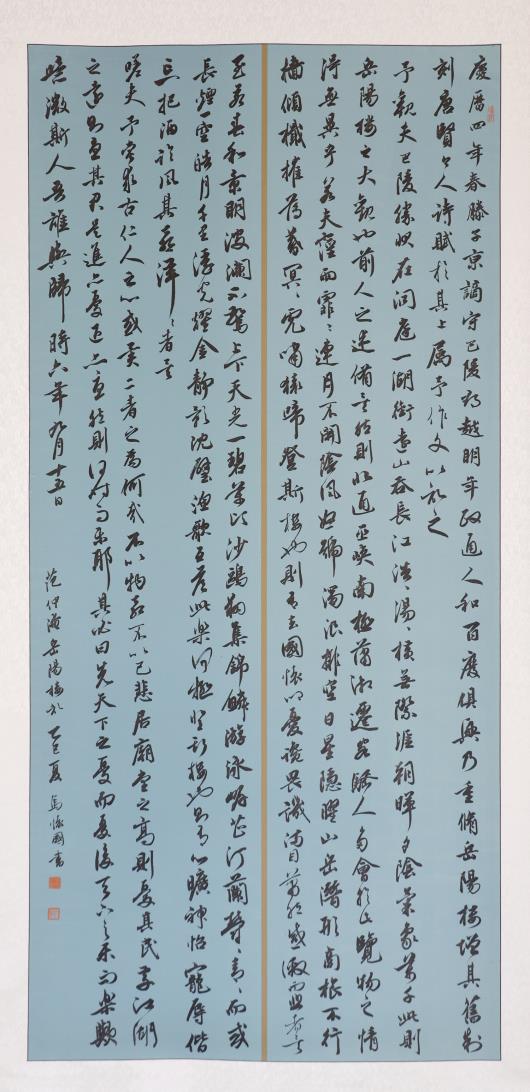 慶曆四年春滕子京謫守巴陵郡越明年政通人和百廢俱興乃重脩岳陽樓增其舊制
刻唐賢今人詩賦於其上屬予作文以記之
予觀夫巴陵勝狀在洞庭一湖銜遠山吞長江浩々湯々橫無際涯朝暉夕陰氣象萬千此則
岳陽樓之大觀也前人之述備矣然則北通巫峽南極瀟湘遷客騷人多會於此覽物之情
得無異乎若夫霪雨霏々連月不開陰風怒號濁浪排空日星隱曜山岳潛形商旅不行
檣傾檝摧薄暮冥々虎嘯猿啼登斯樓也則有去國懷鄉憂讒畏譏滿目蕭然感極而悲者矣
至若春和景明波瀾不驚上下天光一碧萬頃沙鷗翔集錦鱗游泳岸芷汀蘭鬱々青々而或
長煙一空皓月千里浮光耀金靜影沈璧漁歌互答此樂何極登斯樓也則有心曠神怡寵辱偕
忘把酒臨風其喜洋々者矣
嗟夫予嘗求古仁人之心或異二者之為何哉不以物喜不以己悲居廟堂之高則憂其民處江湖
之遠則憂其君是進亦憂退亦憂然則何時而樂耶其必曰先天下之憂而憂後天下之樂而樂歟
噫微斯人吾誰與歸時六年九月十五日
范仲淹岳陽樓記乙巳夏馬懷國書